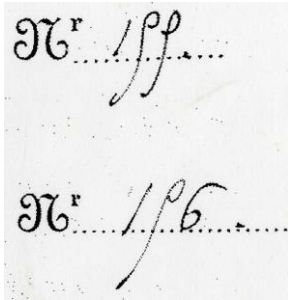 Nr 155.
Nr 156.